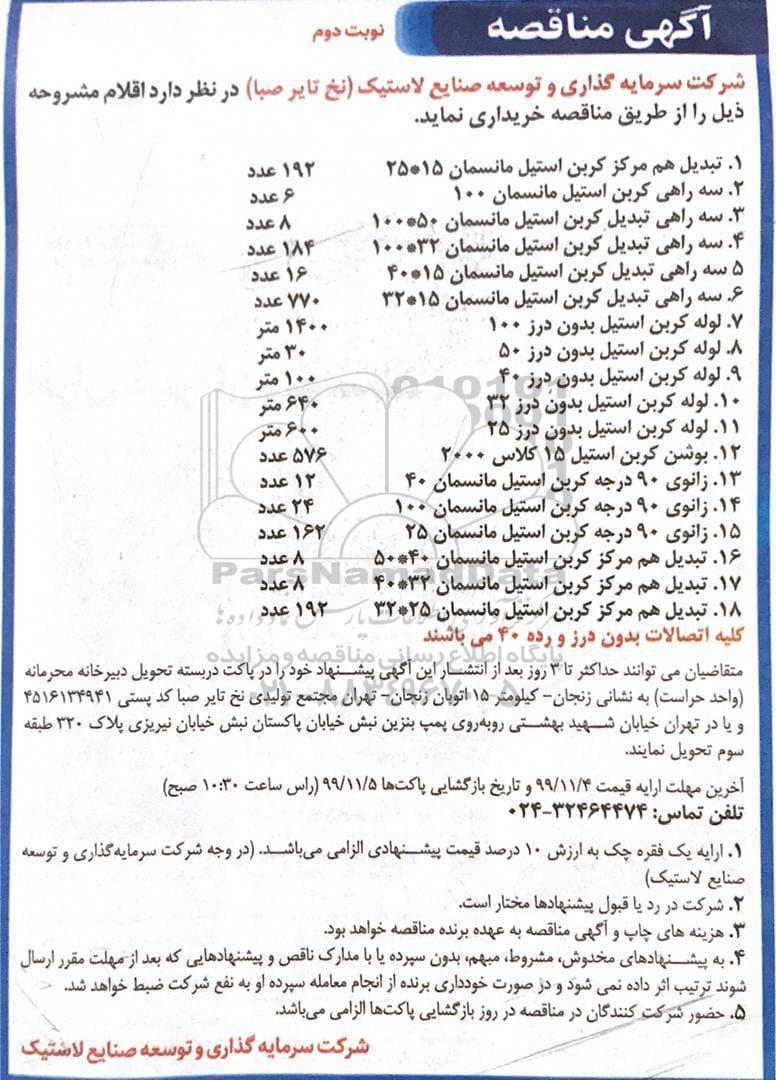 آگهی مناقصه
نوبت دوم
شرکت سرمایه گذاری و توسعه صنایع لاستیک (نخ تایر صبا) در نظر دارد اقلام مشروحه
ذیل را از طریق مناقصه خریداری نماید.
۱. تبدیل هم مرکز کربن استیل مانسمان ۱۵*۲۵ ۱۹۲ عدد
۲. سه راهی کربن استیل مانسمان ۱۰۰ ۶ عدد
۳. سه راهی تبدیل کربن استیل مانسمان ۵۰*۱۰۰ ۸ عدد
۴. سه راهی تبدیل کربن استیل مانسمان ۳۲*۱۰۰ ۱۸۴ عدد
۵ سه راهی تبدیل کربن استیل مانسمان ۱۵*۴۰ ۱۶ عدد
۶. سه راهی تبدیل کربن استیل مانسمان ۱۵*۳۲ ۷۷۰ عدد
۷. لوله کربن استیل بدون درز ۱۰۰ ۱۴۰۰ متر
۸. لوله کربن استیل بدون درز ۵۰ ۳۰ متر
۹. لوله کربن استیل بدون درز ۴۰ ۱۰۰ متر
۱۰. لوله کربن استیل بدون درز ۳۲ ۶۴۰ متر
۱۱. لوله کربن استیل بدون درز ۲۵ ۶۰۰ متر
۱۲. بوشن کربن استیل ۱۵ کلاس ۲۰۰۰ ۵۷۶ عدد
۱۳. زانوی ۹۰ درجه کربن استیل مانسمان ۴۰ ۱۲ عدد
۱۴. زانوی ۹۰ درجه کربن استیل مانسمان ۱۰۰ ۲۴ عدد
۱۵. زانوی ۹۰ درجه کربن استیل مانسمان ۲۵ ۱۶۲ عدد
۱۶. تبدیل هم مرکز کربن استیل مانسمان ۴۰*۵۰ ۸ عدد
ParsNamadData
۱۷. تبدیل هم مرکز کربن استیل مانسمان ۳۲*۴۰ ۸ عدد
۱۸. تبدیل هم مرکز کربن استیل مانسمان ۲۵*۳۲ ۱۹۲ عدد
کلیه اتصالات بدون درز و رده ۴۰ می باشند
پایگاه اطلاع رسانی مناقصه و مزایده
متقاضیان می توانند حداکثر تا ۳ روز بعد از انتشار این آگهی پیشنهاد خود را در پاکت دربسته تحویل دبیرخانه محرمانه
(واحد حراست) به نشانی زنجان- کیلومتر ۱۵ اتوبان زنجان- تهران مجتمع تولیدی نخ تایر صبا کد پستی ۴۵۱۶۱۳۴۹۴۱
و یا در تهران خیابان شهید بهشتی روبه‌روی پمپ بنزین نبش خیابان پاکستان نبش خیابان نیریزی پلاک ۳۲۰ طبقه
سوم تحویل نمایند.
آخرین مهلت ارایه قیمت ۹۹/۱۱/۴ و تاریخ بازگشایی پاکت‌ها ۹۹/۱۱/۵ (راس ساعت ۱۰:۳۰ صبح)
تلفن تماس: ۳۲۴۶۴۴۷۴-۰۲۴
۱. ارایه یک فقره چک به ارزش ۱۰ درصد قیمت پیشنهادی الزامی می‌باشد. (در وجه شرکت سرمایه‌گذاری و توسعه
صنایع لاستیک)
۲. شرکت در رد یا قبول پیشنهادها مختار است.
۳. هزینه های چاپ و آگهی مناقصه به عهده برنده مناقصه خواهد بود.
۴. به پیشنهادهای مخدوش، مشروط، مبهم، بدون سپرده یا با مدارک ناقص و پیشنهادهایی که بعد از مهلت مقرر ارسال
شوند ترتیب اثر داده نمی شود و در صورت خودداری برنده از انجام معامله سپرده او به نفع شرکت ضبط خواهد شد.
۵. حضور شرکت کنندگان در مناقصه در روز بازگشایی پاکت‌ها الزامی می‌باشد.
شرکت سرمایه گذاری و توسعه صنایع لاستیک